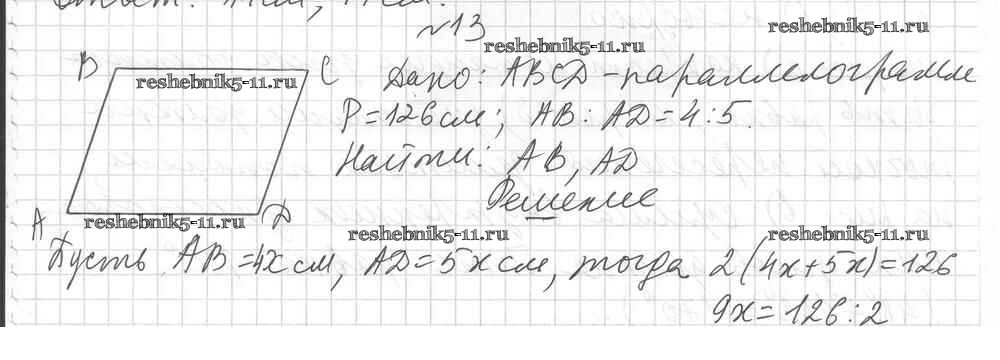 Ответ: см, см.
№13
reshebnik5-11.ru
reshebnik5-11.ru
B reshebnik5-11.ru C
Дано: ABCD - параллелограмм
P=126 см; AB : AD = 4:5.
Найти: AB, AD
Решение
A reshebnik5-11.ru D
reshebnik5-11.ru
reshebnik5-11.ru
Пусть AB = 4x см, AD = 5x см, тогда 2(4x+5x)=126
9x = 126:2